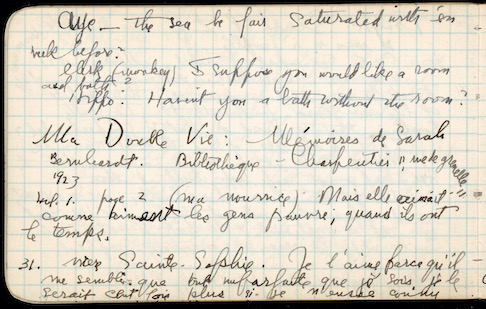 Aye — the sea be fair saturated with 'em
week before?
Clerk (monkey) I suppose you would like a room
and bath?
Hippo. Haven't you a bath without the room?
Ma Double Vie: Mémoires de Sarah
Bernhardt. Bibliothèque - Charpentier,
1923
Vol. 1. page 2 (ma nourrice) Mais elle aimait
comme aiment les gens pauvre, quand ils ont
le temps.
31. mère Sainte-Sophie. Je l'aime parce qu'il
me semble que tout que je sois, je le
serait cent fois plus si je